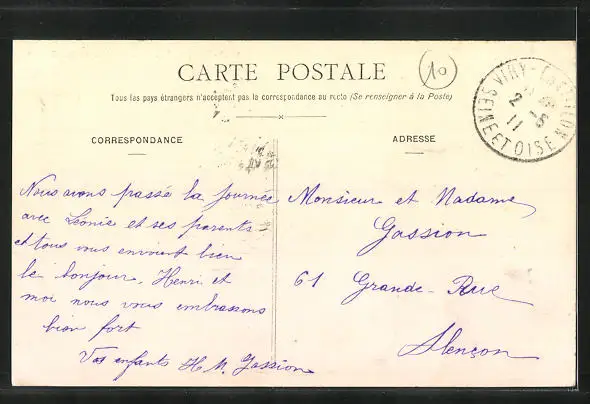 CARTE POSTALE
10
Tous les pays étrangers n'acceptent pas la correspondance au recto (Se renseigner à la Poste)
VIRY-CHATILLON
2-5
11
SEINE ET OISE
CORRESPONDANCE
ADRESSE
Nous avons passé la journée
avec Léonie et ses parents
et tous vous envoient bien
le bonjour, Henri et
moi nous vous embrassons
bien fort
Vos enfants H M. Gassion
Monsieur et Madame
Gassion
61 Grande-Rue
Alençon